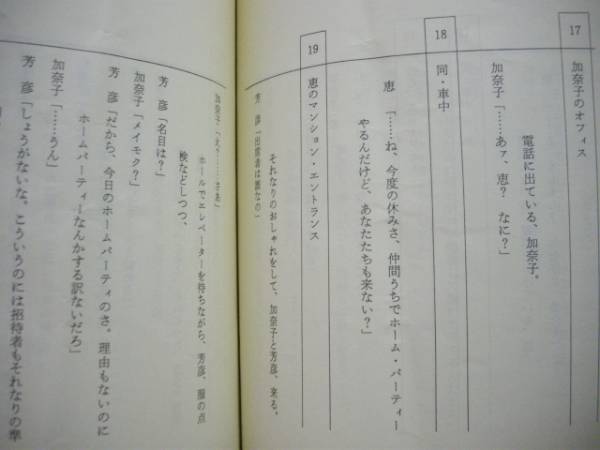 17
加奈子のオフィス
電話に出ている、加奈子。
加奈子「……あァ、恵？　なに？」
18
同・車中
恵　「……ね、今度の休みさ、仲間うちでホーム・パーティー
やるんだけど、あなたたちも来ない？」
19
恵のマンション・エントランス
それなりのおしゃれをして、加奈子と芳彦、来る。
芳　彦「出席者は誰なの」
加奈子「えぇ……さあ」
ホールでエレベーターを待ちながら、芳彦、服の点
検などしつつ、
芳　彦「名目は？」
加奈子「メイモク？」
芳　彦「だから、今日のホームパーティのさ。理由もないのに
ホームパーティーなんかする訳ないだろ」
加奈子「……うん」
芳　彦「しょうがないな。こういうのには招待者もそれなりの準